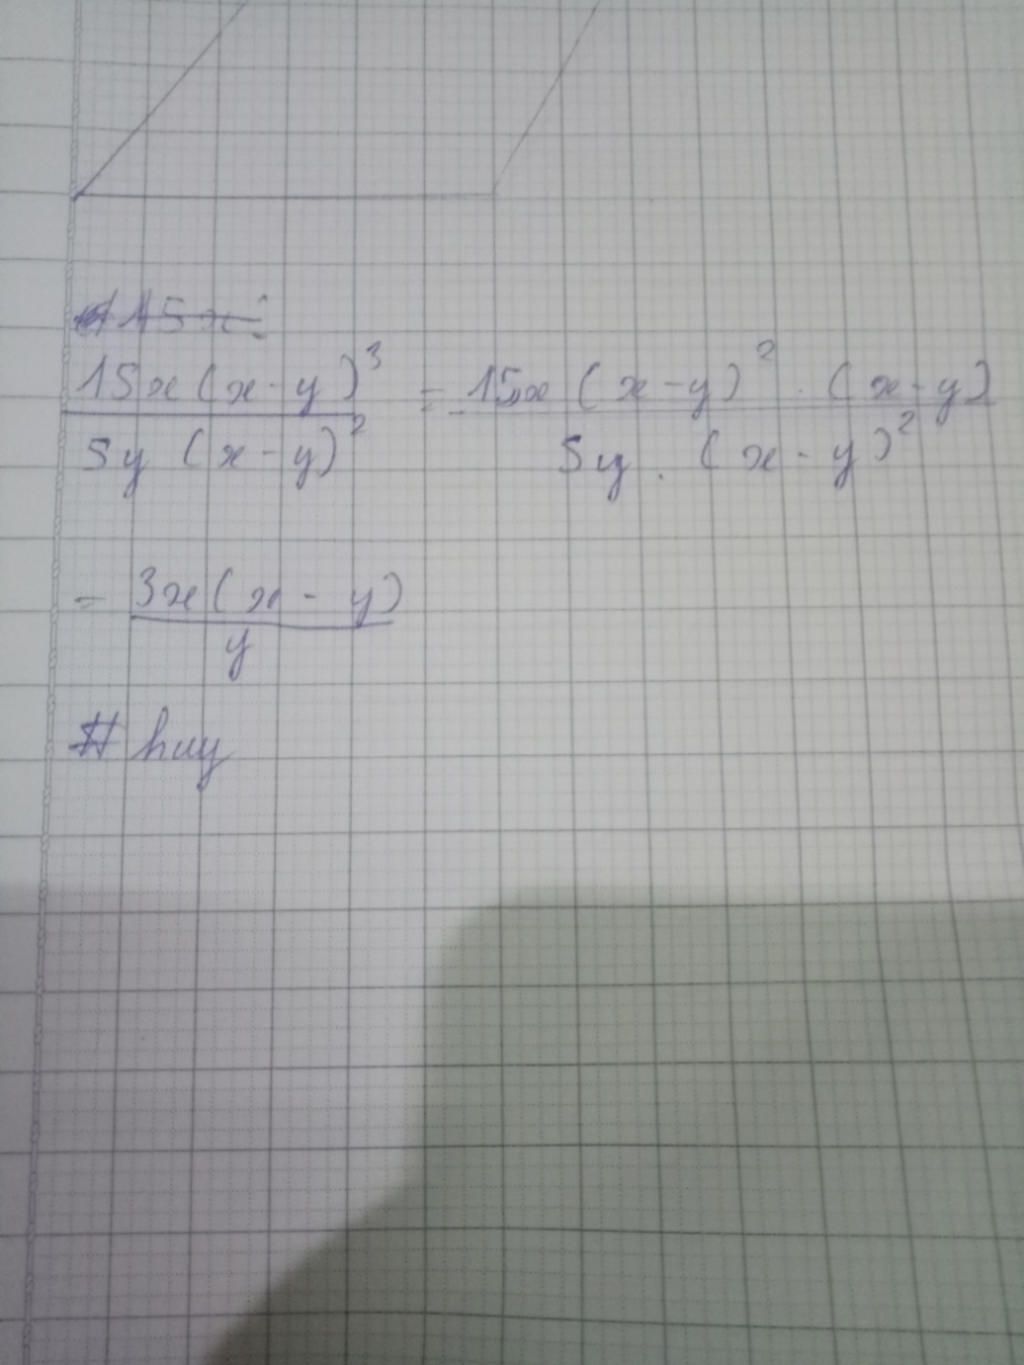 15x(x-y)³ / 5y(x-y)² = 15x(x-y)² . (x-y) / 5y . (x-y)²
= 3x(x-y) / y
# huy